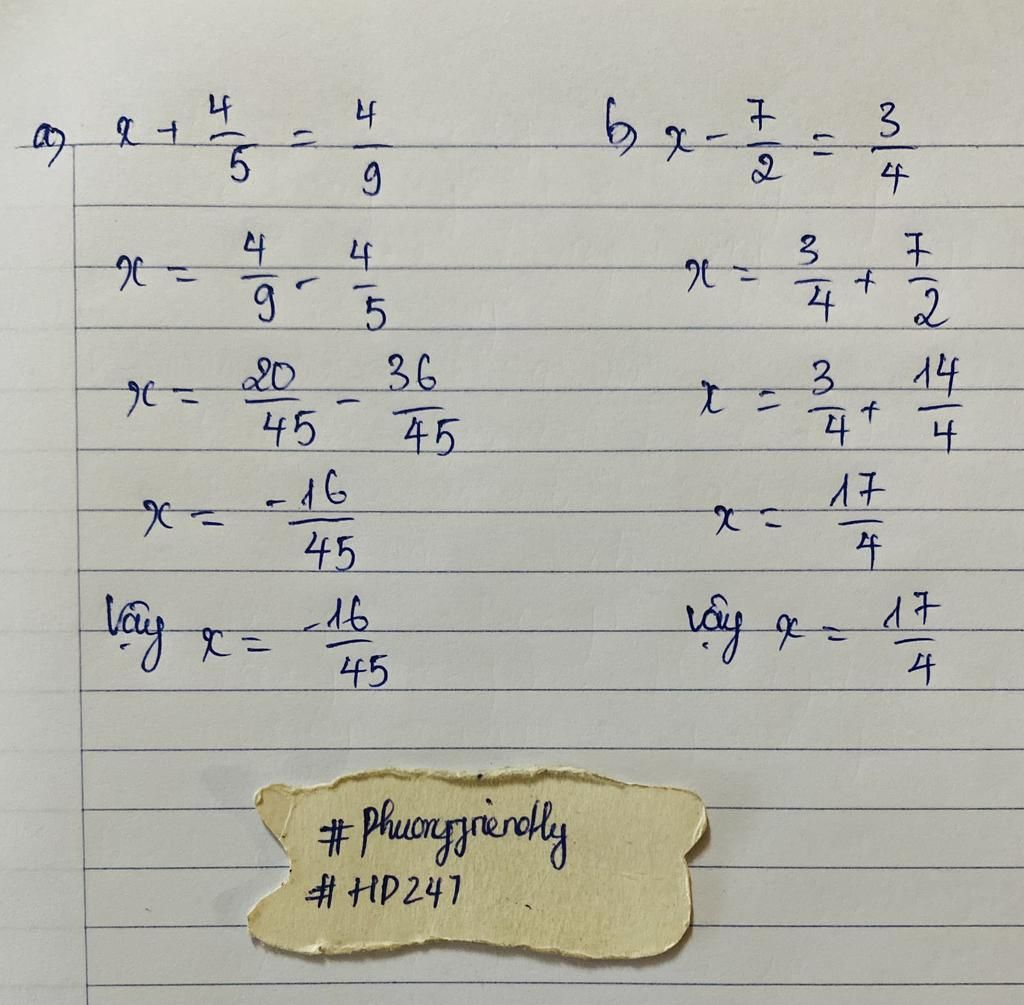 a) x + 4/5 = 4/9
x = 4/9 - 4/5
x = 20/45 - 36/45
x = -16/45
Vậy x = -16/45
b) x - 7/2 = 3/4
x = 3/4 + 7/2
x = 3/4 + 14/4
x = 17/4
vậy x = 17/4
# Phuongfriendly
# HD247